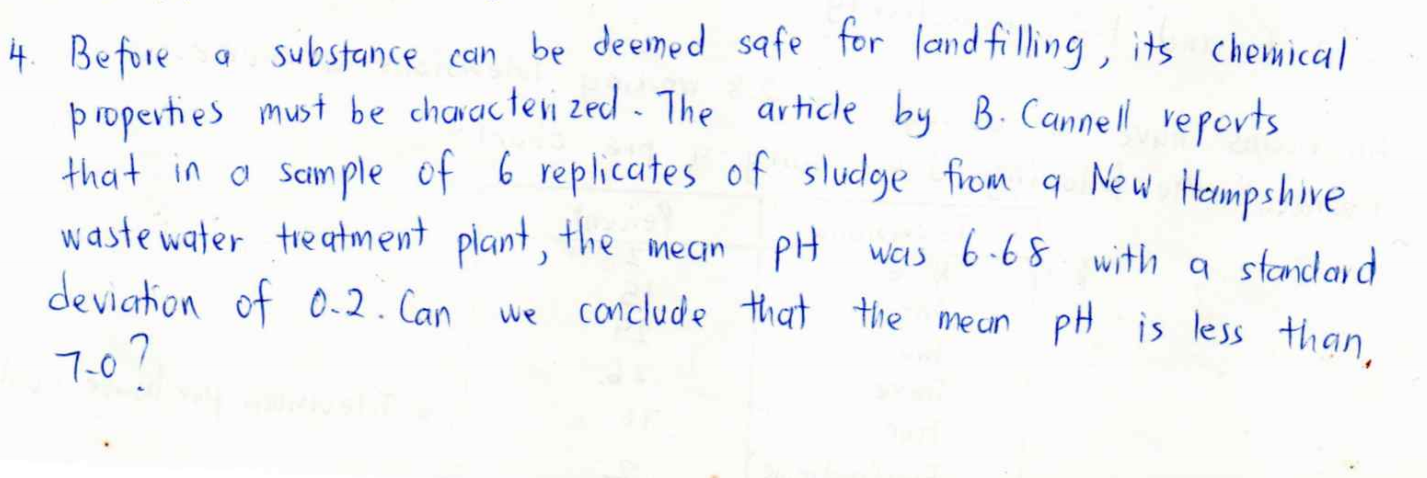 4. Before a substance can be deemed safe for landfilling, its chemical
properties must be characterized. The article by B. Cannell reports
that in a sample of 6 replicates of sludge from a New Hampshire
wastewater treatment plant, the mean pH was 6.68 with a standard
deviation of 0.2. Can we conclude that the mean pH is less than
7.0?